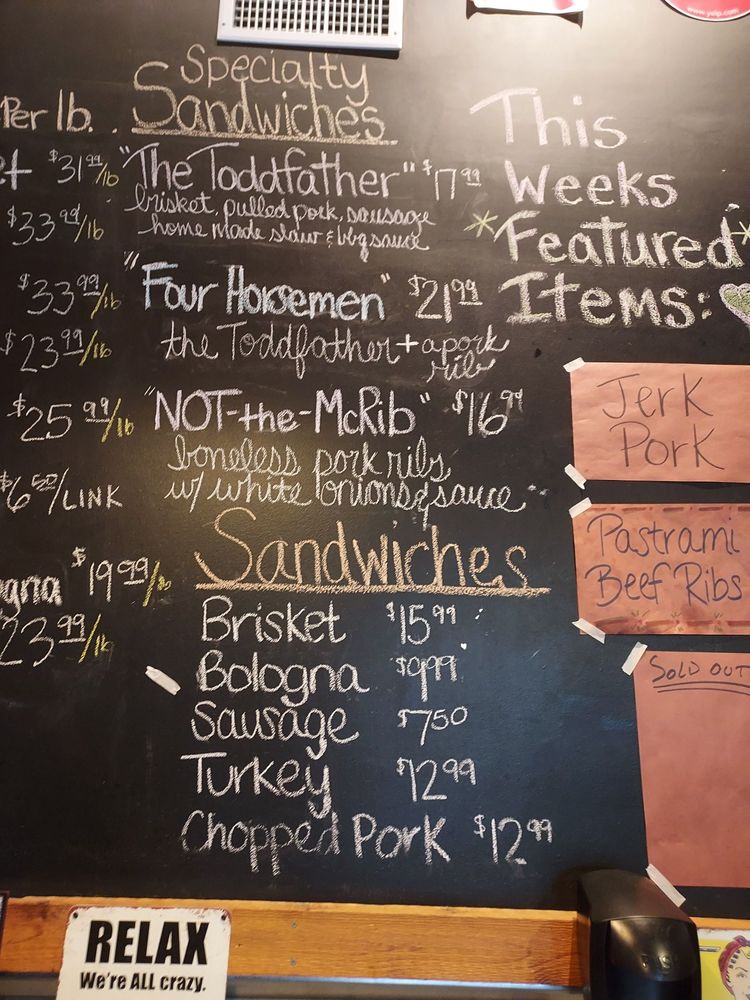 www.yelp.com
Per lb.
$31.99/lb
$33.99/lb
$33.99/lb
$23.99/lb
$25.99/lb
$6.50/LINK
$19.99/lb
23.99/lb
Specialty
Sandwiches
"The Toddfather" $17.99
brisket, pulled pork, sausage
home made slaw & bbq sauce
"Four Horsemen" $21.99
the Toddfather + a pork
rib
"NOT-the-McRib" $16.99
boneless pork ribs
w/ white onions & sauce
Sandwiches
Brisket $15.99
Bologna $9.99
Sausage $7.50
Turkey $12.99
Chopped Pork $12.99
This
Weeks
*Featured*
Items:
Jerk
Pork
Pastrami
Beef Ribs
SOLD OUT
RELAX
We're ALL crazy.